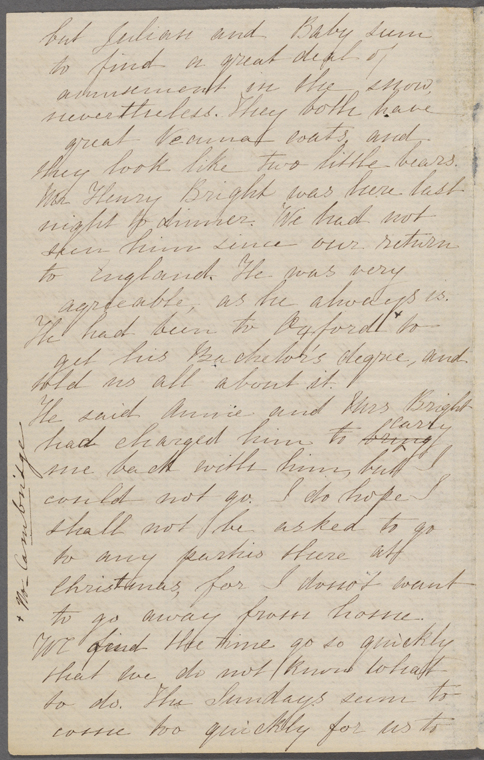 but Julian and Baby seem
to find a great deal of
amusement in the snow,
nevertheless. They both have
great coats, and
they look like two little bears.
Mr Henry Bright was here last
night to dinner. We had not
seen him since our return
to England. He was very
agreeable, as he always is.
He had been to Oxford + to
get his Bachelor's degree, and
told us all about it.
He said Annie and Mrs Bright
had charged him to bring carry
me back with him, but I
could not go. I do hope I
shall not be asked to go
to any parties there at
Christmas, for I donot want
to go away from home.
We find the time go so quickly
that we do not know what
to do. The Sundays seem to
come too quickly for us to
+ No Cambridge